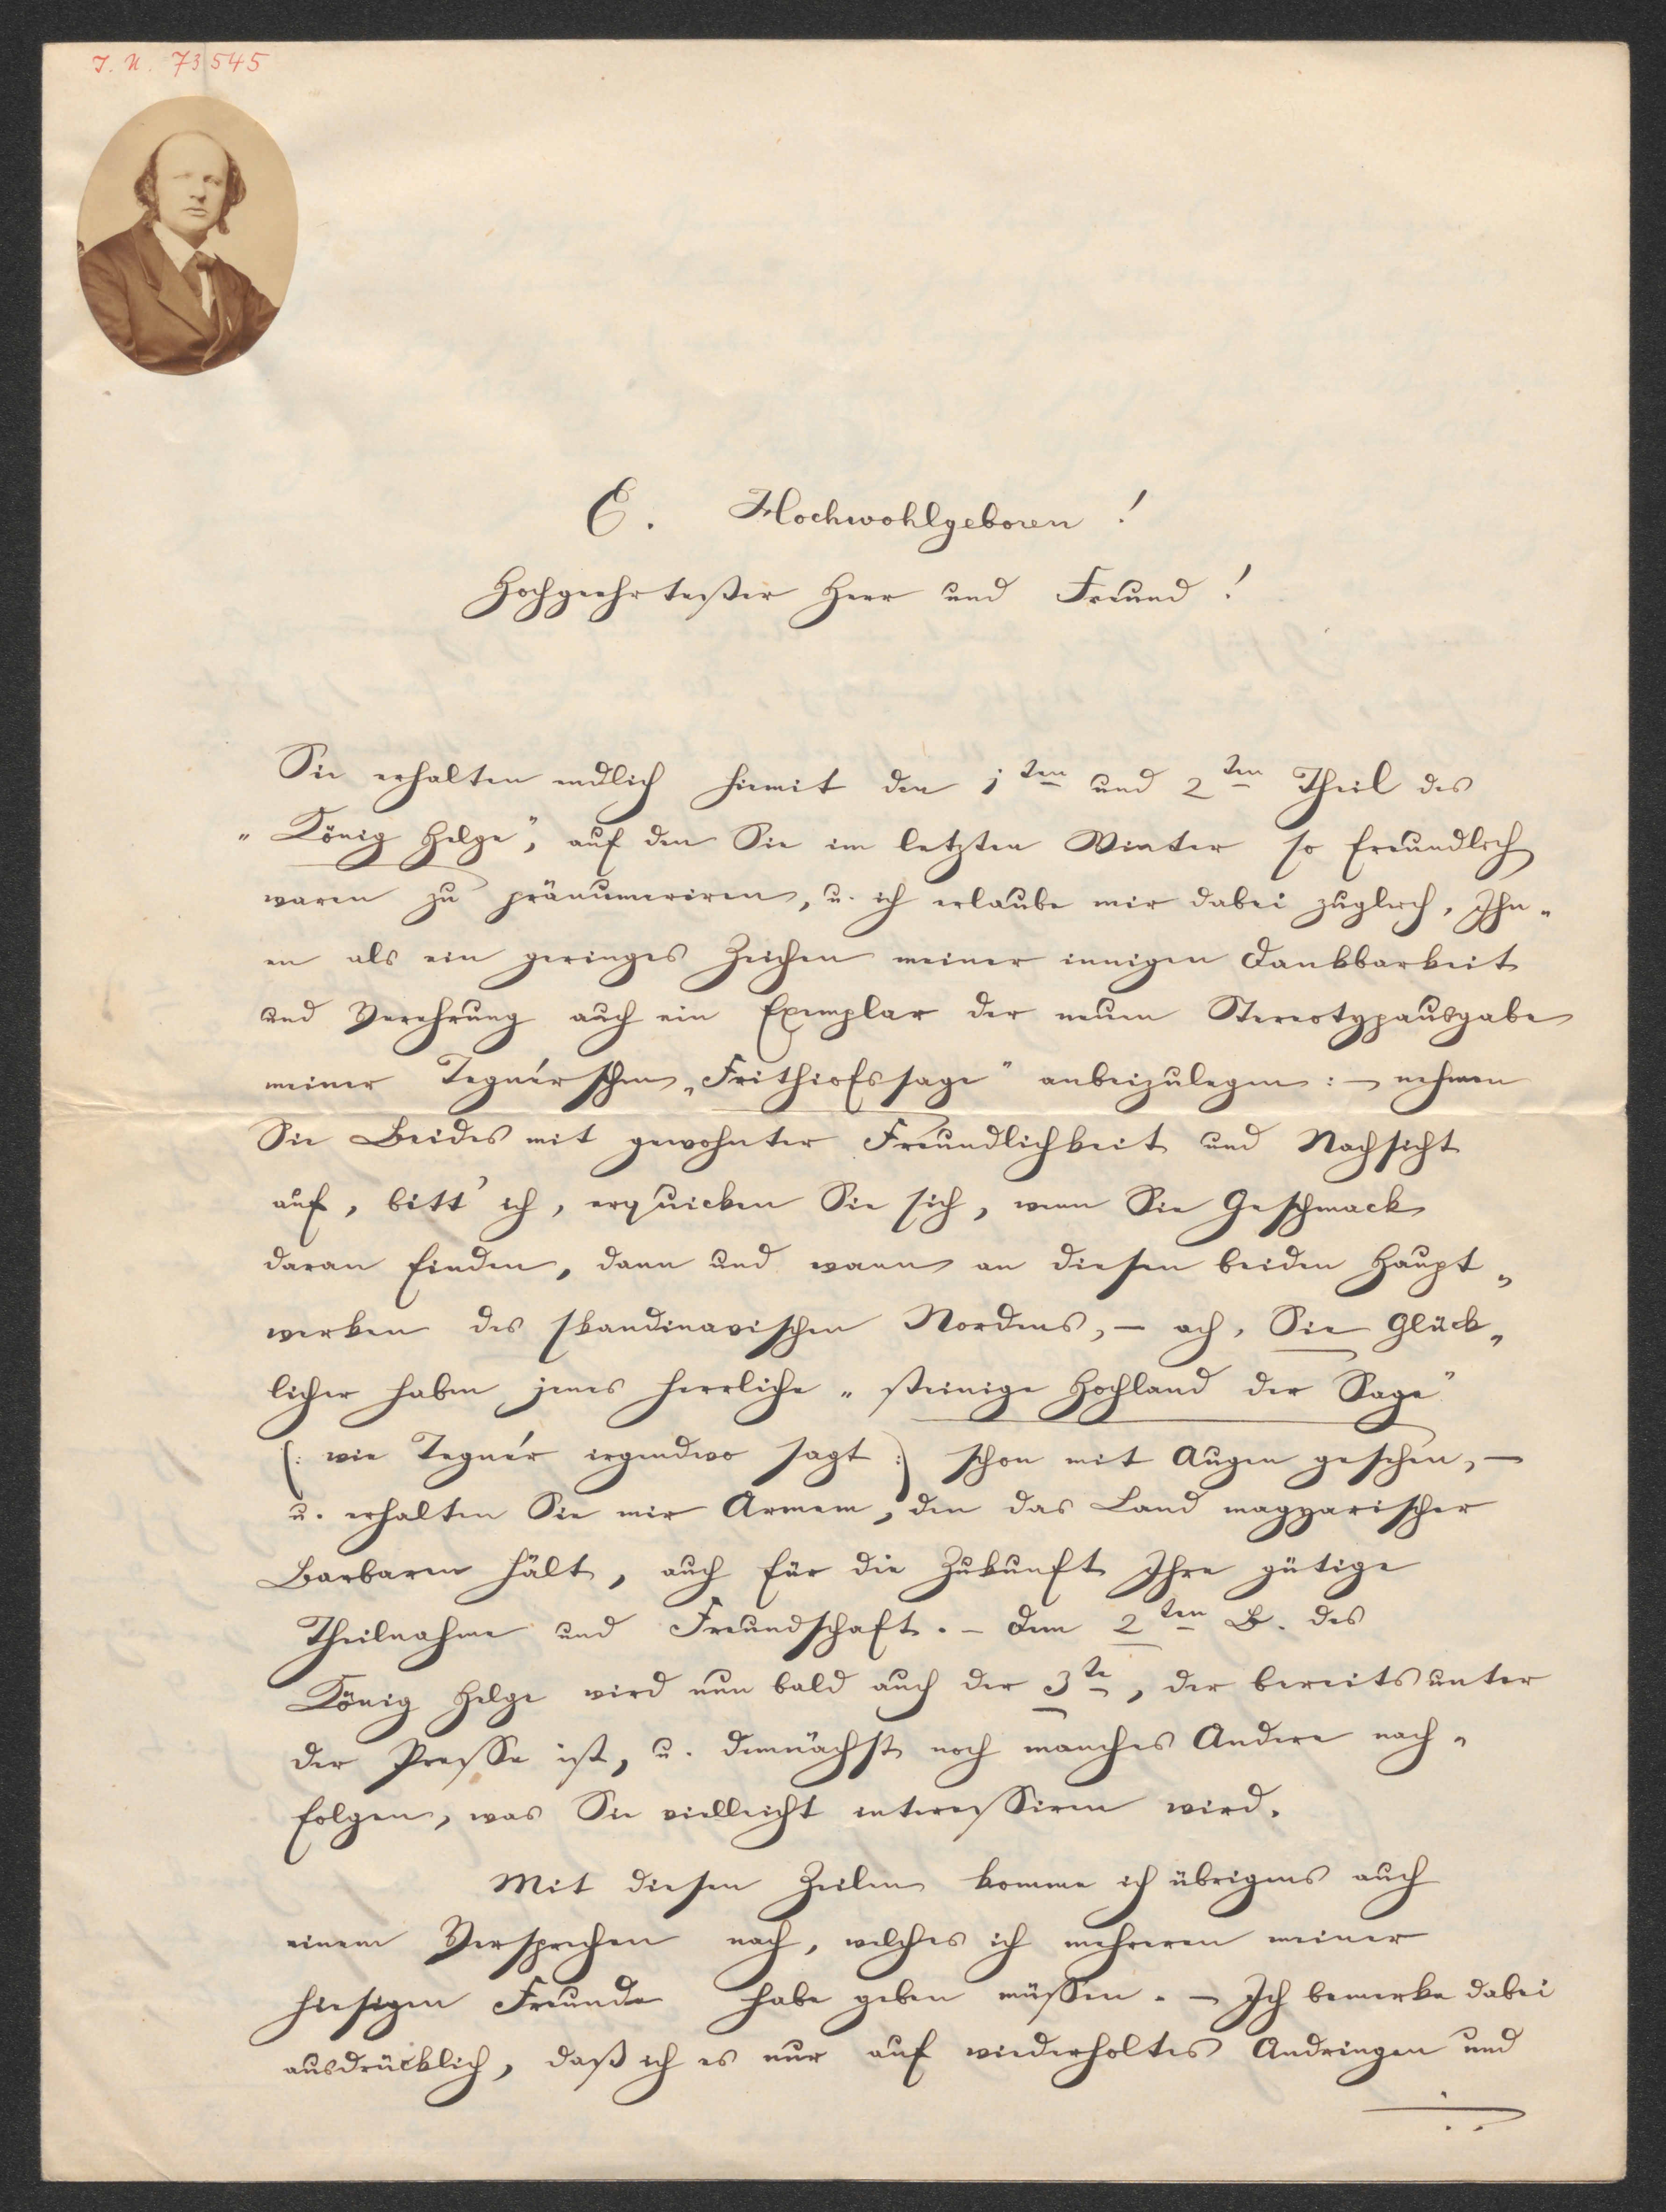 I. N. 73545
E. Hochwohlgeboren!
Hochgeehrtester Herr und Freund!
Sie erhalten endlich hiemit den 1ten und 2ten Theil des
„König Helge", auf den Sie im letzten Winter so freundlich
waren zu pränumeriren, u. ich erlaube mir dabei zugleich, Ihn„
en als ein geringes Zeichen meiner innigen Dankbarkeit
und Verehrung auch ein Exemplar der neuen Stereotypausgabe
meiner Tegnér'schen „Frithiofssage" anbeizulegen: – nehmen
Sie Beides mit gewohnter Freundlichkeit und Nachsicht
auf, bitt' ich, erquicken Sie sich, wenn Sie Geschmack
daran finden, dann und wann an diesen beiden Haupt„
werken des skandinavischen Nordens, – ach, Sie Glück„
licher haben jenes herrliche „steinige Hochland der Sage"
(: wie Tegnér irgendwo sagt :) schon mit Augen gesehen, –
u. erhalten Sie mir Armem, den das Land magyarischer
Barbaren hält, auch für die Zukunft Ihre gütige
Theilnahme und Freundschaft. – Dem 2ten B. des
König Helge wird nun bald auch der 3te, der bereits unter
der Presse ist, u. demnächst noch manches Andere nach„
folgen, was Sie vielleicht interessiren wird.
Mit diesen Zeilen komme ich übrigens auch
einem Versprechen nach, welches ich mehreren meiner
hiesigen Freunde habe geben müssen. – Ich bemerke dabei
ausdrücklich, daß ich es nur auf wiederholtes Andringen und